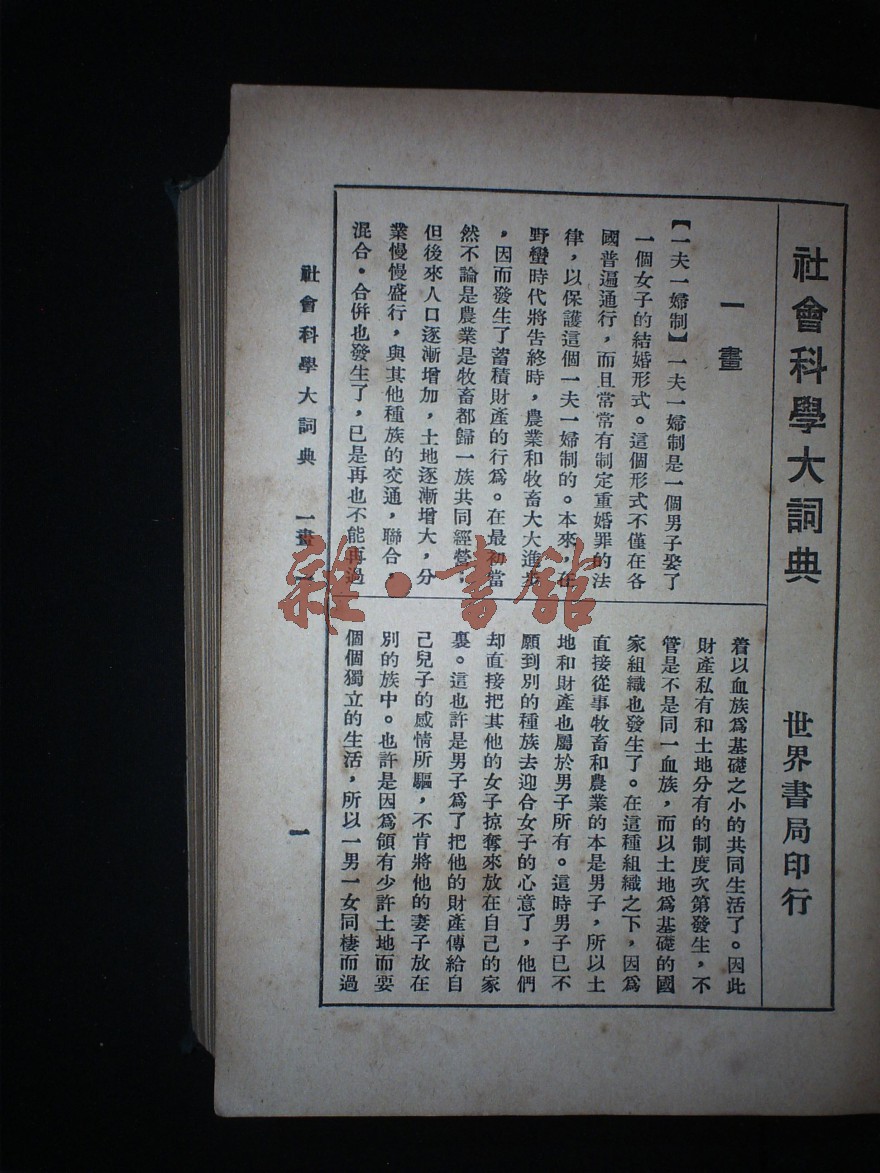 社會科學大詞典　世界書局印行
一畫
【一夫一婦制】一夫一婦制是一個男子娶了
一個女子的結婚形式。這個形式不僅在各
國普遍通行，而且常常有制定重婚罪的法
律，以保護這個一夫一婦制的。本來，在
野蠻時代將告終時，農業和牧畜大大進步
，因而發生了蓄積財產的行爲。在最初當
然不論是農業是牧畜都歸一族共同經營，
但後來人口逐漸增加，土地逐漸增大，分
業慢慢盛行，與其他種族的交通，聯合，
混合・合併也發生了，已是再也不能再過
着以血族爲基礎之小的共同生活了。因此
財產私有和土地分有的制度次第發生，不
管是不是同一血族，而以土地爲基礎的國
家組織也發生了。在這種組織之下，因爲
直接從事牧畜和農業的本是男子，所以土
地和財產也屬於男子所有。這時男子已不
願到別的種族去迎合女子的心意了，他們
却直接把其他的女子掠奪來放在自己的家
裏。這也許是男子爲了把他的財產傳給自
己兒子的感情所驅，不肯將他的妻子放在
別的族中。也許是因爲領有少許土地而要
個個獨立的生活，所以一男一女同棲而過
社會科學大詞典　一畫　一
雜・書館